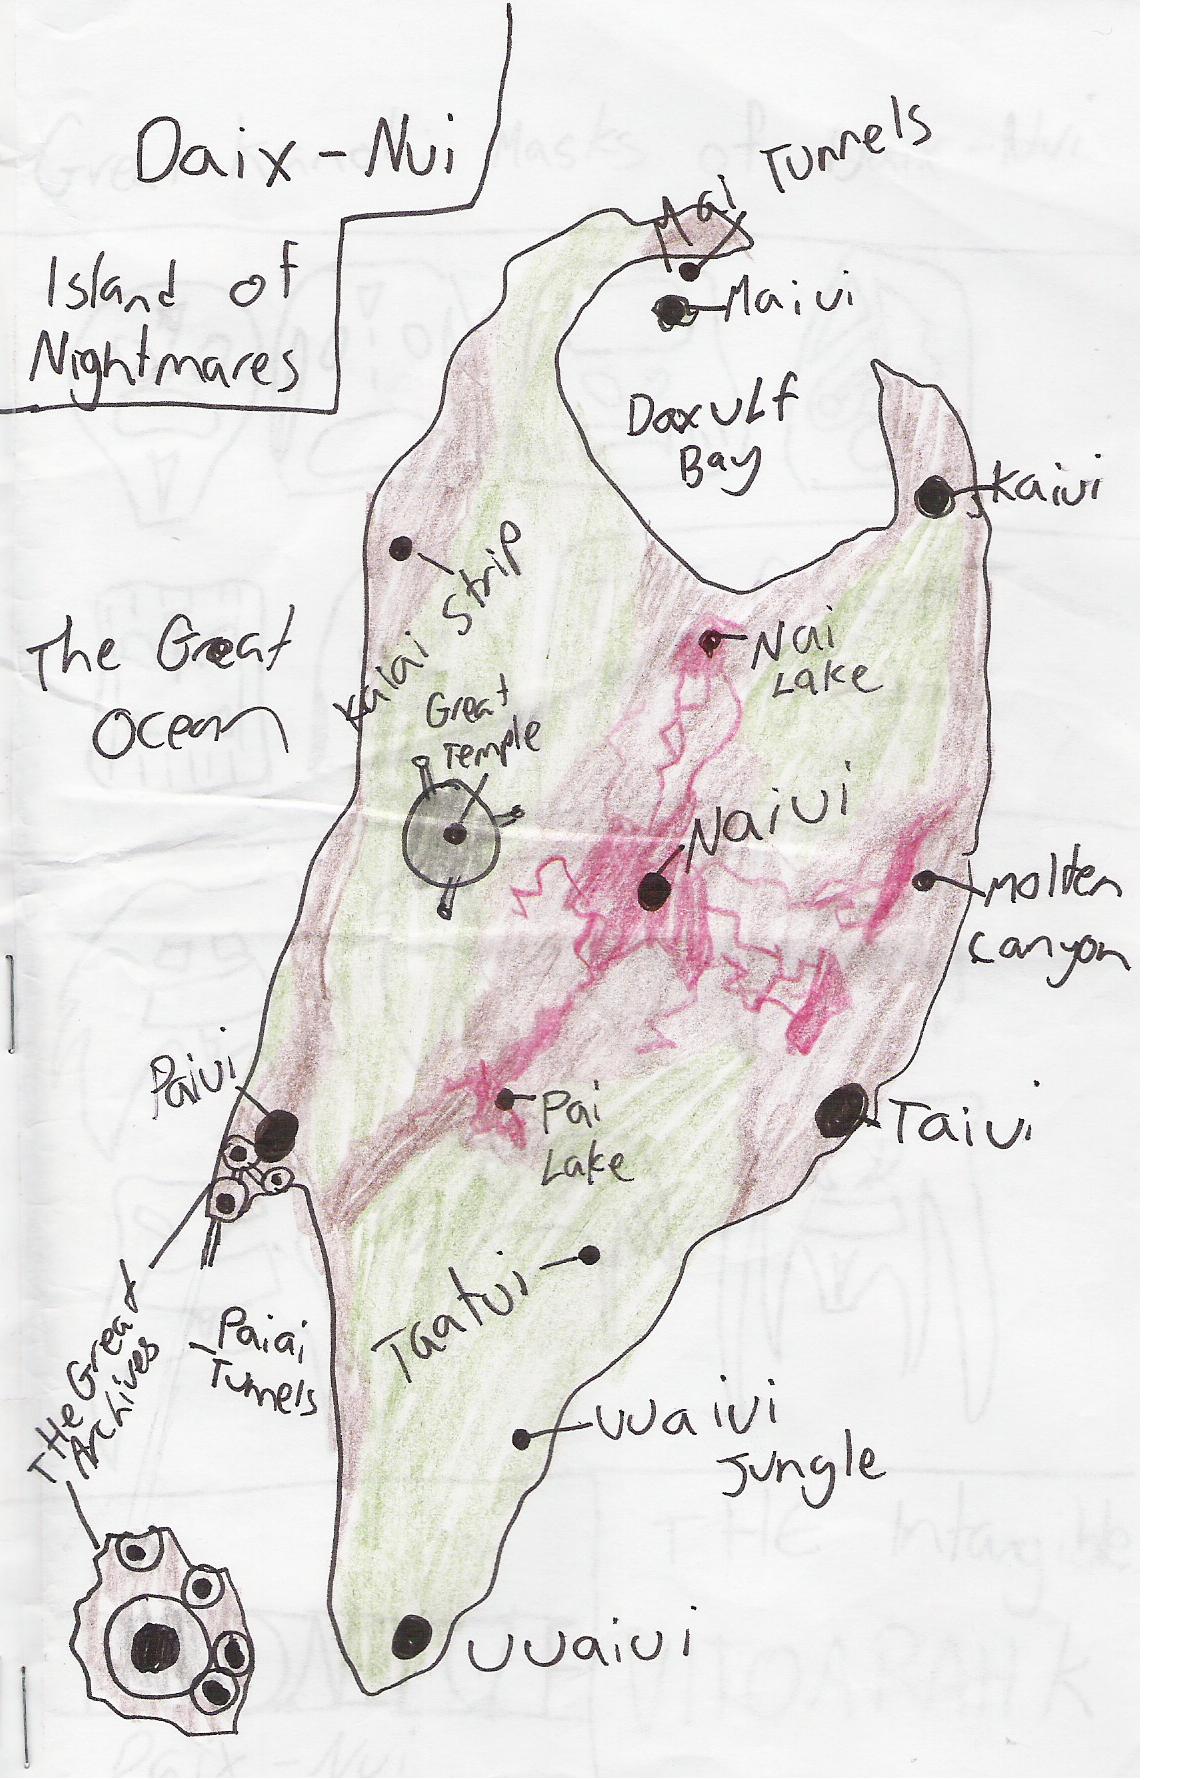 Daix-Nui
Island of
Nightmares
Mai Tunnels
Maivi
Daxulf
Bay
Kaivi
Kalai Strip
The Great
Ocean
Nai
Lake
Great
Temple
Naiui
Molten
Canyon
Paiui
Pai
Lake
Taiui
Taatui
The Great
Archives
Paiai
Tunnels
Uuaiui
Jungle
Uuaiui